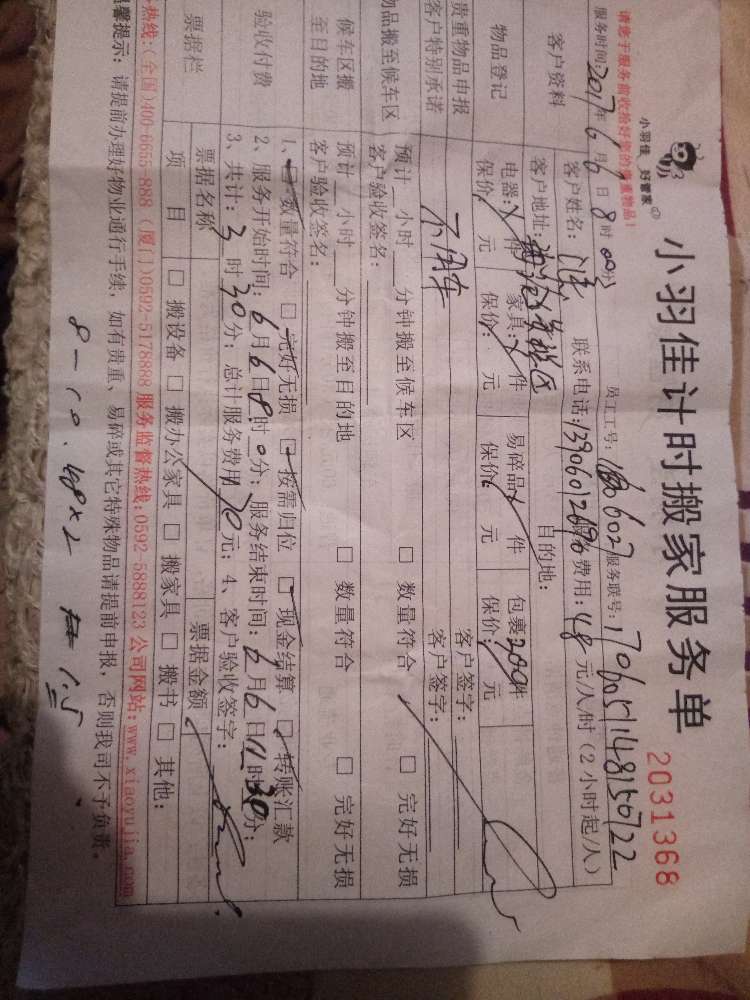 小羽佳计时搬家服务单
2031368
小羽佳 好管家
请您于服务前收拾好您的贵重物品!
员工工号: 服务联号:1706051148150722
服务时间:2017年6月6日8时00分
客户资料
客户姓名: 联系电话: 服务费用:48元/人/时(2小时起/人)
客户地址: 目的地:
物品登记
电器: 件 家具: 件 易碎品: 件 包裹:200件
保价: 元 保价: 元 保价: 元 保价: 元
贵重物品申报 客户签字:
客户特别承诺 不用车 客户签字:
物品搬至候车区
预计 小时 分钟搬至候车区 □ 数量符合 □ 完好无损
客户验收签名:
候车区搬至目的地
预计 小时 分钟搬至目的地 □ 数量符合 □ 完好无损
客户验收签名:
验收付费
1、□ 数量符合 □ 完好无损 □ 按需归位 □ 现金结算 □ 转账汇款
2、服务开始时间:6月6日8时0分;服务结束时间:6月6日11时30分;
3、共计:3时30分;总计服务费用 元;4、客户验收签字:
票据栏
票据名称 票据金额
项目 □ 搬设备 □ 搬办公家具 □ 搬家具 □ 搬书 □ 其他:
热线:(全国)400-6655-888 (厦门)0592-5178888 服务监督热线:0592-5888123 公司网站:www.xiaoyujia.com
温馨提示:请提前办理好物业通行手续,如有贵重、易碎或其它特殊物品请提前申报,否则我司不予负责。
8-10. 48×2 1.5